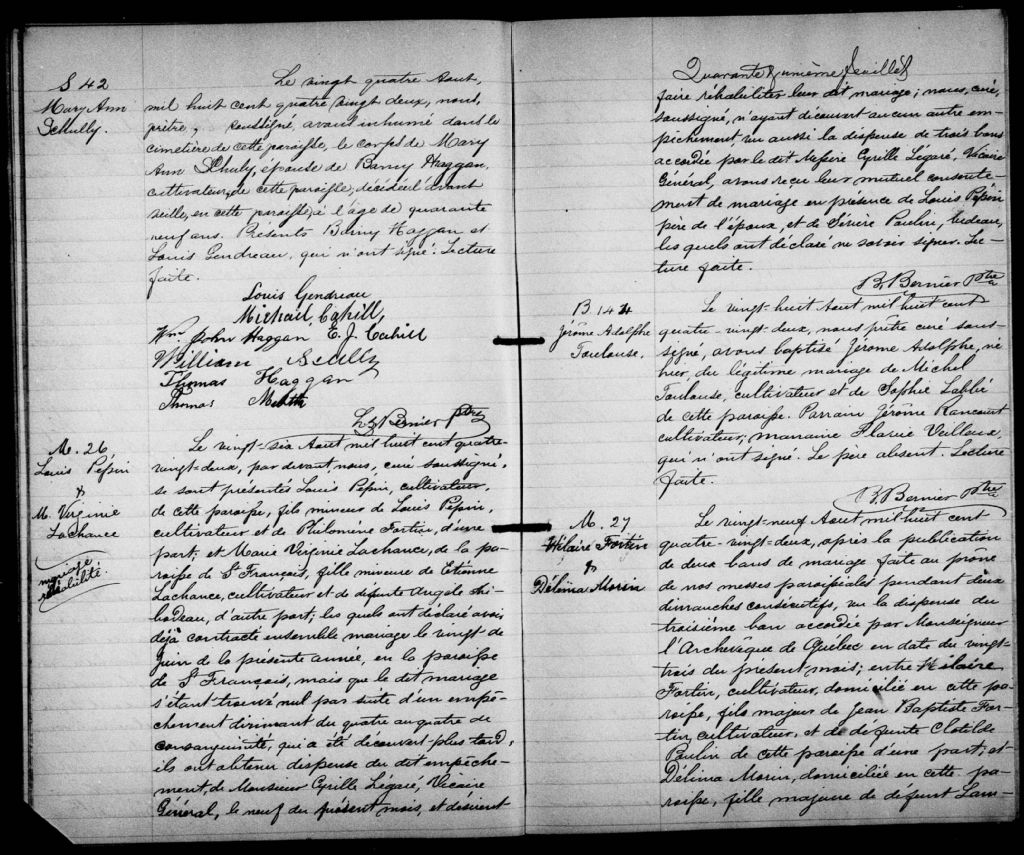 S 42
Mary Ann
Scully.
Le vingt quatre Aout,
mil huit cent quatre vingt deux, nous,
prêtre, soussigné, avons inhumé dans le
cimetière de cette paroisse, le corps de Mary
Ann Schuly, épouse de Barny Haggan,
cultivateur, de cette paroisse, décédée l'avant
veille, en cette paroisse, à l'âge de quarante
neuf ans. Présents Barny Haggan et
Louis Gendreau, qui n'ont signé. Lecture
faite.
Louis Gendreau
Michael Cahill,
Wm John Haggan E. J. Cahill
William Scully
Thomas Haggan
Thomas
B. Bernier Ptre
M. 26
Louis Pépin
&
M. Virginie
Lachance
mariage
réhabilité.
Le vingt-six Aout mil huit cent quatre-
vingt-deux, par devant nous, curé soussigné,
se sont présentés Louis Pepin, cultivateur,
de cette paroisse, fils mineur de Louis Pépin,
cultivateur et de Philomène Fortin, d'une
part; et Marie Virginie Lachance, de la pa-
roisse de St François, fille mineure de Etienne
Lachance, cultivateur et de défunte Angèle Thi-
bodeau, d'autre part; les quels ont déclaré avoir
déjà contracté ensemble mariage le vingt de
Juin de la présente année, en la paroisse
de St François, mais que le dit mariage
s'étant trouvé nul par suite d'un empê-
chement dirimant du quatre au quatre de
consanguinité, qui a été découvert plus tard,
ils ont obtenu dispense du dit empêche-
ment, de Monsieur Cyrille Légaré, Vicaire
Général, le neuf du présent mois, et désirent
Quarante unième feuillet
faire réhabiliter leur dit mariage; nous, curé,
soussigné, n'ayant découvert aucun autre em-
pêchement, vu aussi la dispense de trois bans
accordée par le dit Messire Cyrille Légaré, Vicaire
Général, avons reçu leur mutuel consente-
ment de mariage en présence de Louis Pépin
père de l'époux, et de Poulin, bedeau,
les quels ont déclaré ne savoir signer. Lec-
ture faite.
B. Bernier Ptre
B. 144
Jérôme Adolphe
Toulouse,
Le vingt-huit Aout mil huit cent
quatre-vingt-deux, nous prêtre curé sous-
signé, avons baptisé Jérôme Adolphe, né
hier du légitime mariage de Michel
Toulouse, cultivateur et de Sophie
de cette paroisse. Parrain Jérôme Rancourt
cultivateur; marraine Flavie Veilleux,
qui n'ont signé. Le père absent. Lecture
faite.
B. Bernier Ptre
M. 27
Hilaire Fortin
&
Délima Morin
Le vingt-neuf Aout mil huit cent
quatre-vingt-deux, après la publication
de deux bans de mariage faite au prône
de nos messes paroissiales pendant deux
dimanches consécutifs, vu la dispense du
troisième ban accordée par Monseigneur
l'Archevêque de Québec en date du vingt-
trois du présent mois; entre Hilaire
Fortin, cultivateur, domicilié en cette pa-
roisse, fils majeur de Jean Baptiste For-
tin, cultivateur, et de défunte Clotilde
Poulin de cette paroisse d'une part; et
Délima Morin, domiciliée en cette pa-
roisse, fille majeure de défunt Lam-